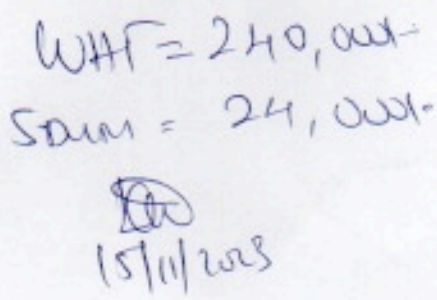 WHT = 240,000/-
SDLM = 24,000/-
15/11/2023